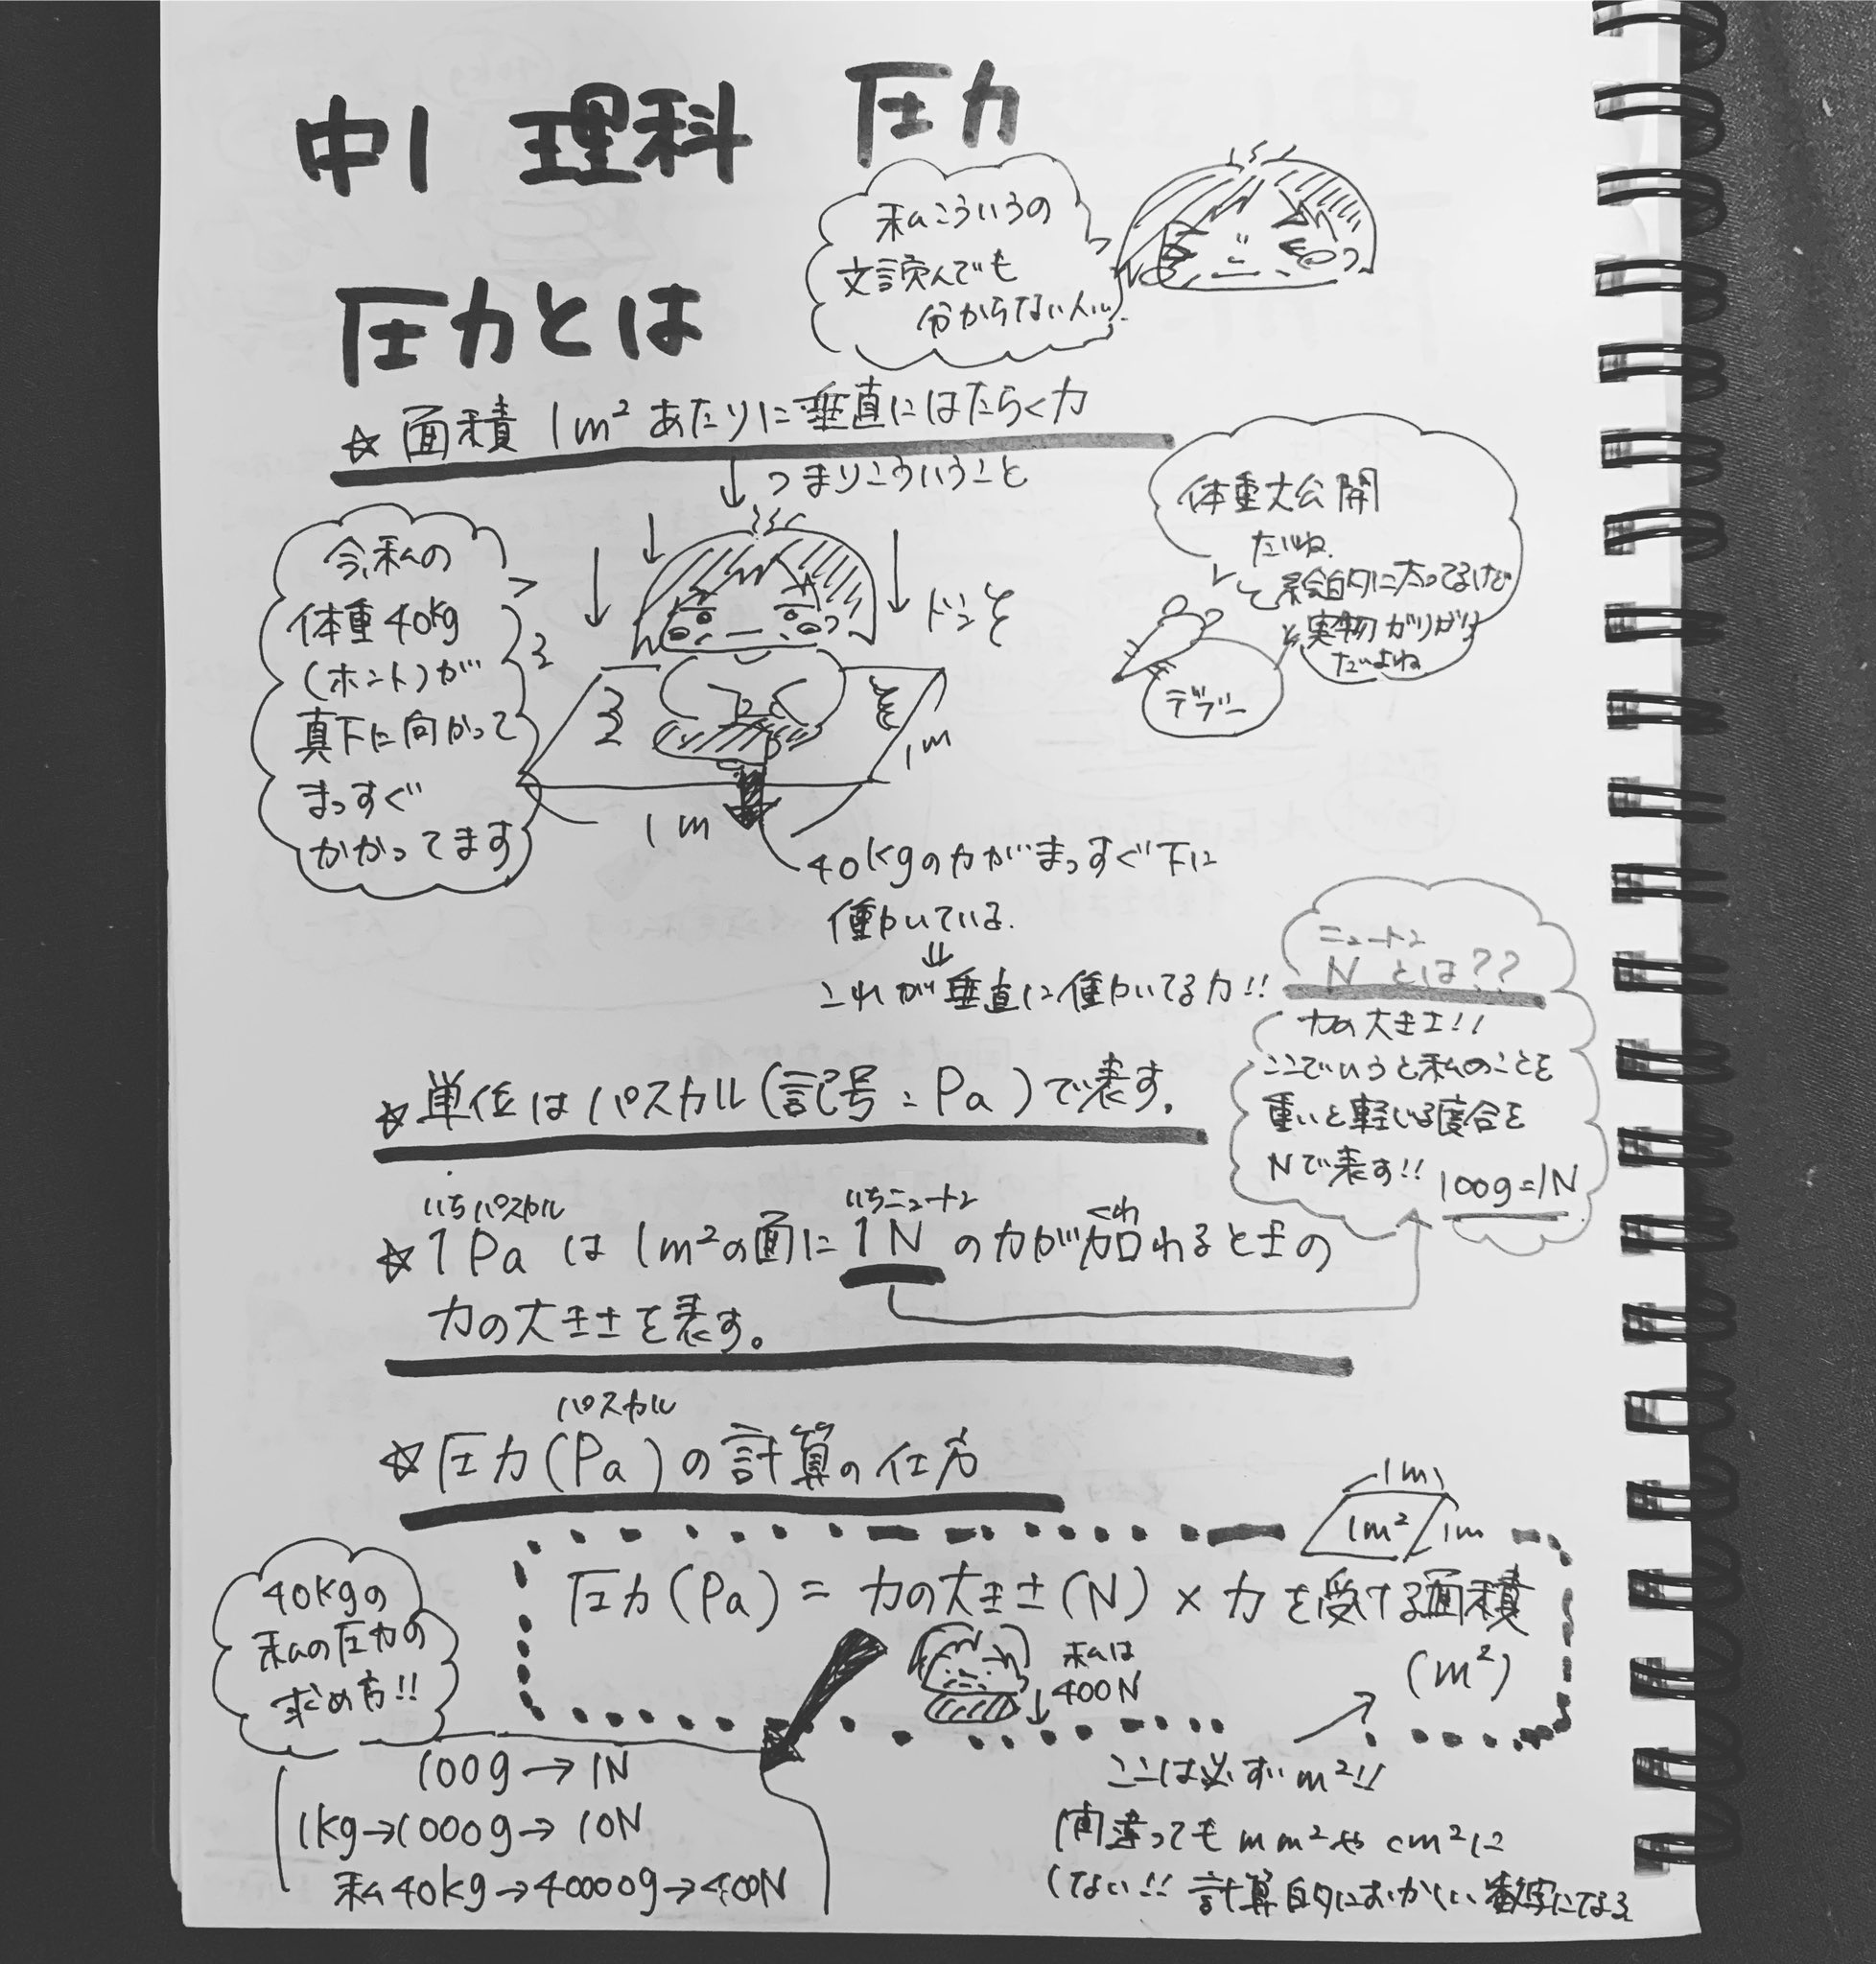 中1 理科 圧力
私こういうの
文読んでも
分からない人
圧力とは
☆ 面積 1m² あたりに垂直にはたらく力
↓ つまりこういうこと
今、私の
体重40kg
(ホント)が
真下に向かって
まっすぐ
かかってます
ドンと
体重大公開
だいね
と 絵的に太ってるけど
実物 がりがり
だいよね
デブー
1m
1m
40kgの力がまっすぐ下に
働いている.
⇓
これが垂直に働いてる力!!
ニュートン
N とは??
力の大きさ!!
ここでいうと私のことを
重いと軽い度合を
Nで表す!! 100g=1N
☆単位はパスカル(記号:Pa)で表す.
いちパスカル いちニュートン くわ
☆1Pa は 1m²の面に 1N の力が加わるときの
力の大きさを表す。
パスカル
☆圧力(Pa)の計算の仕方
1m
1m² 1m
圧力(Pa) = 力の大きさ(N) × 力を受ける面積
(m²)
私は
400N
40kgの
私の圧力の
求め方!!
100g→1N
1kg→1000g→10N
私40kg→40000g→400N
ここは必ず m²!!
間違っても mm²や cm²に
しない!! 計算的におかしい数字になる